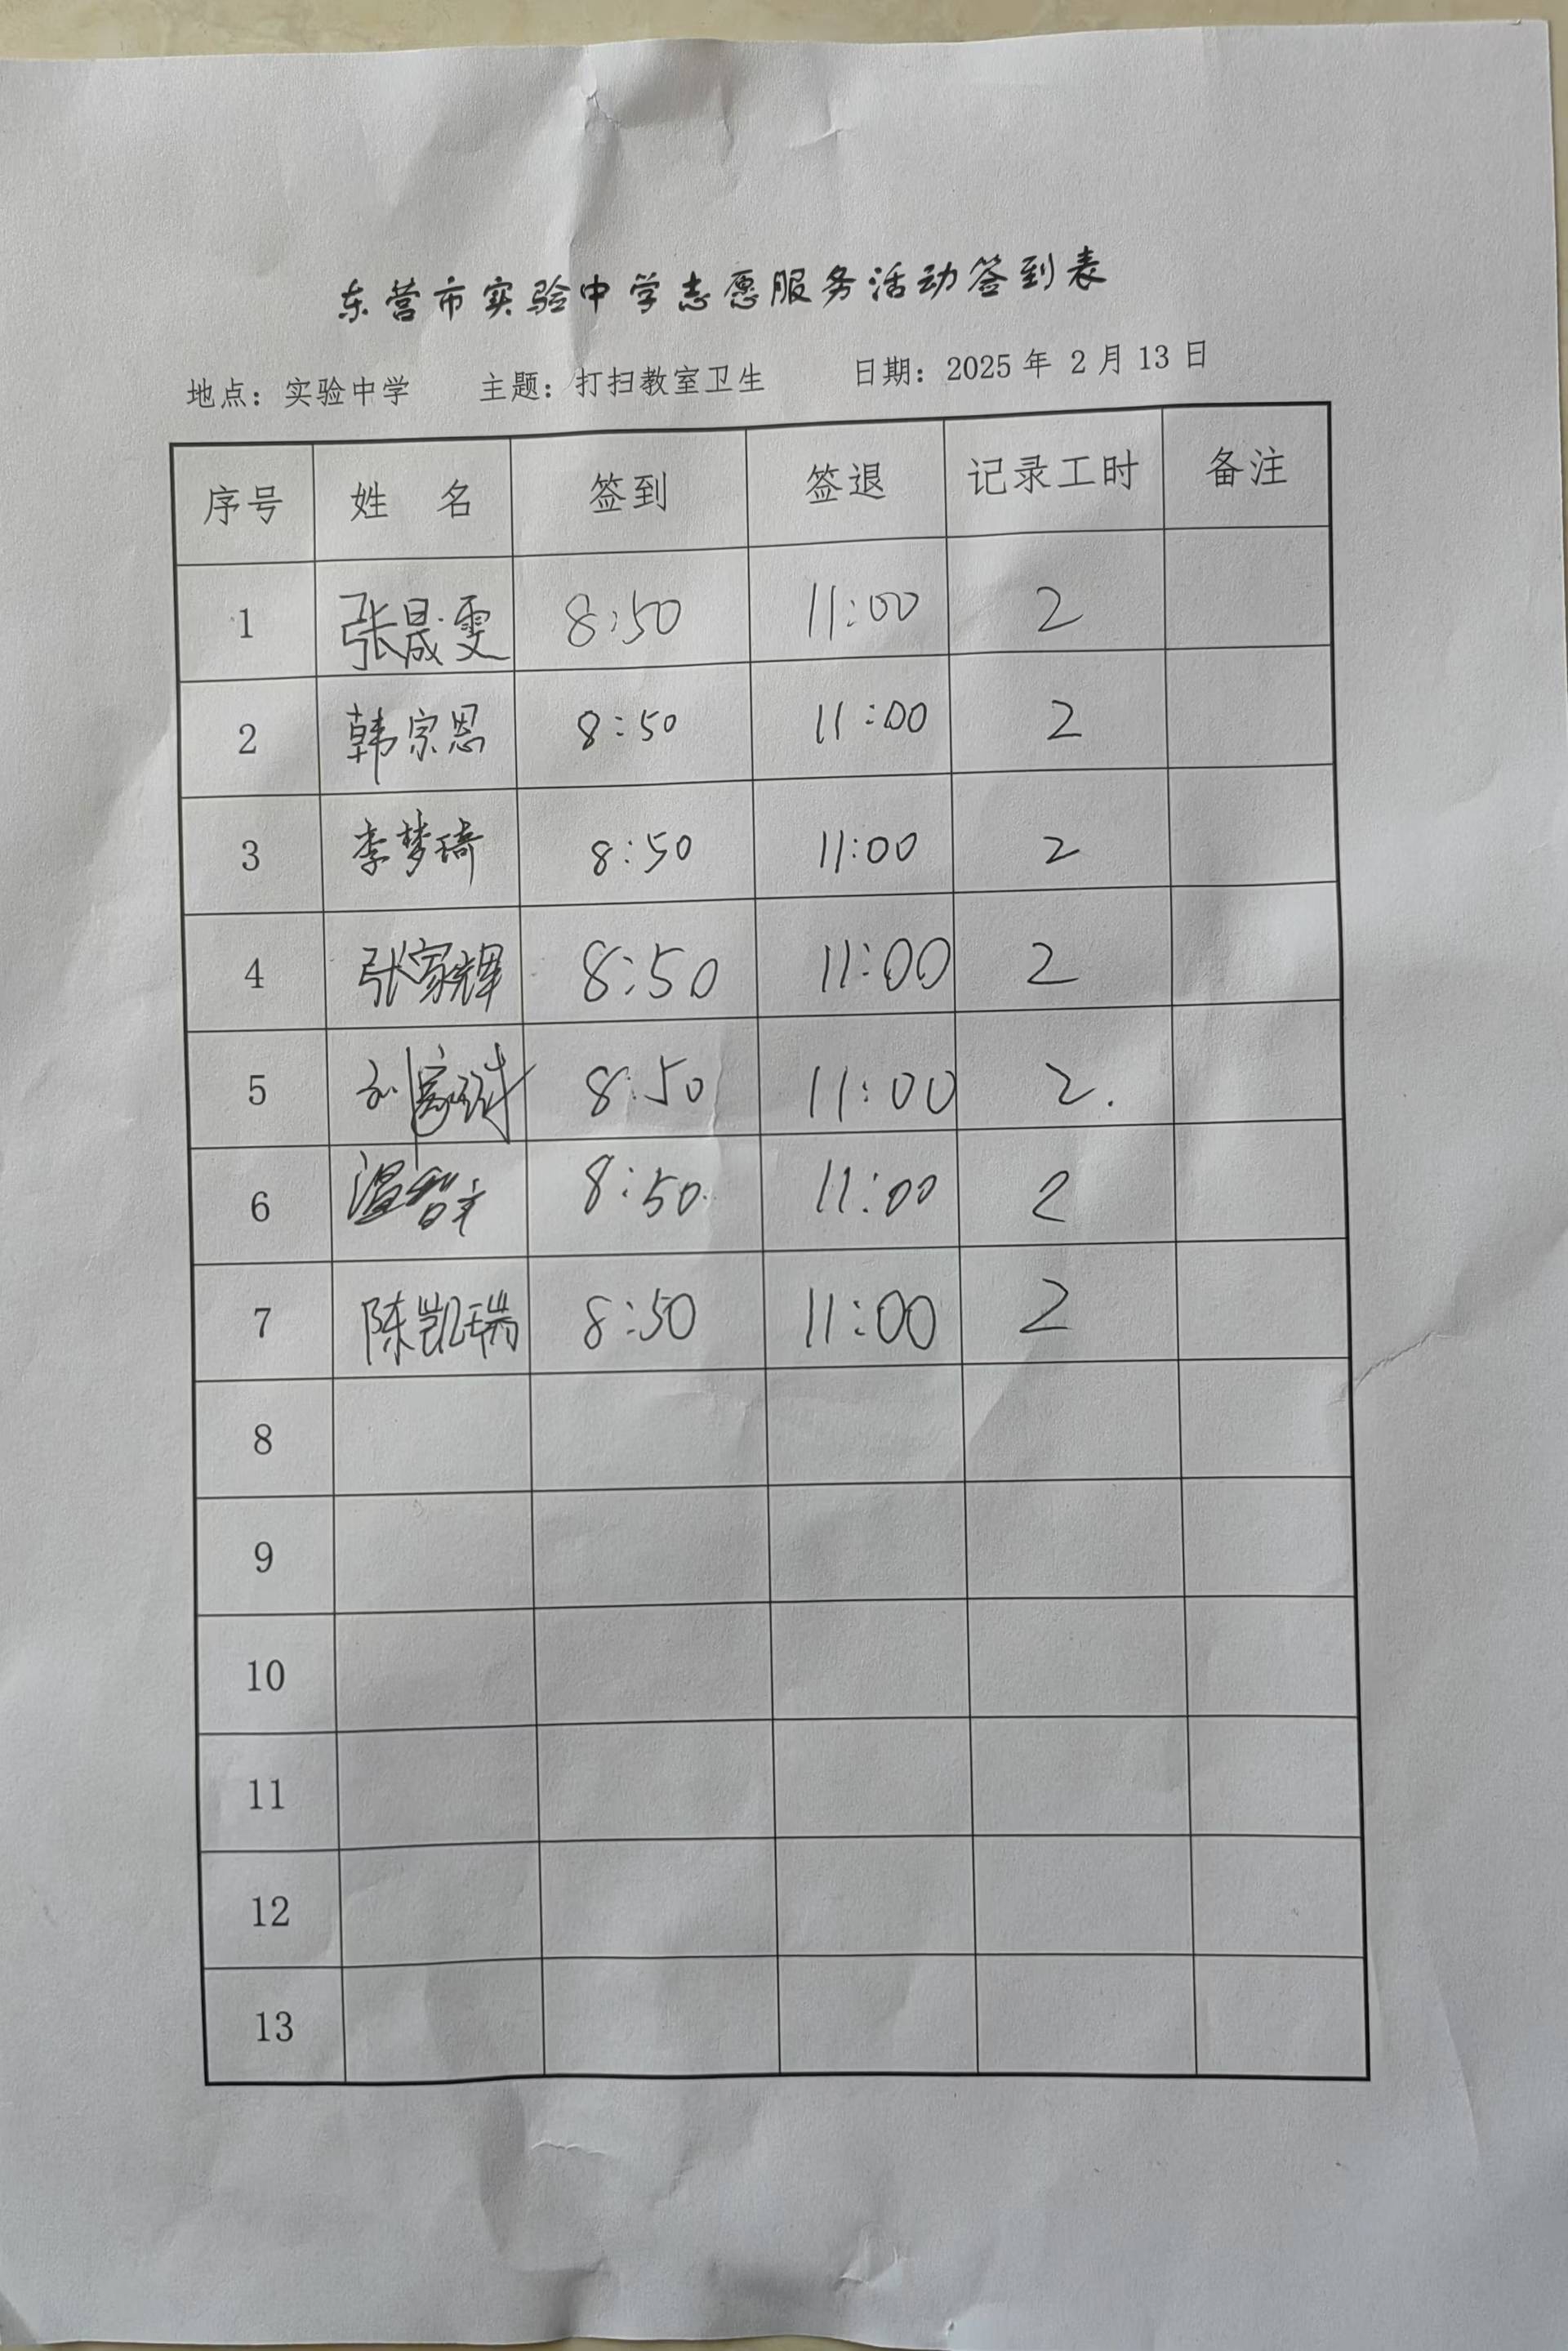 东营市实验中学志愿服务活动签到表
地点：实验中学 主题：打扫教室卫生 日期：2025 年 2 月 13 日
序号 姓 名 签到 签退 记录工时 备注
1 张晟雯 8:50 11:00 2
2 韩宗恩 8:50 11:00 2
3 李梦琦 8:50 11:00 2
4 张家辉 8:50 11:00 2
5 刘家 8:50 11:00 2.
6 温 8:50 11:00 2
7 陈凯瑞 8:50 11:00 2
8
9
10
11
12
13